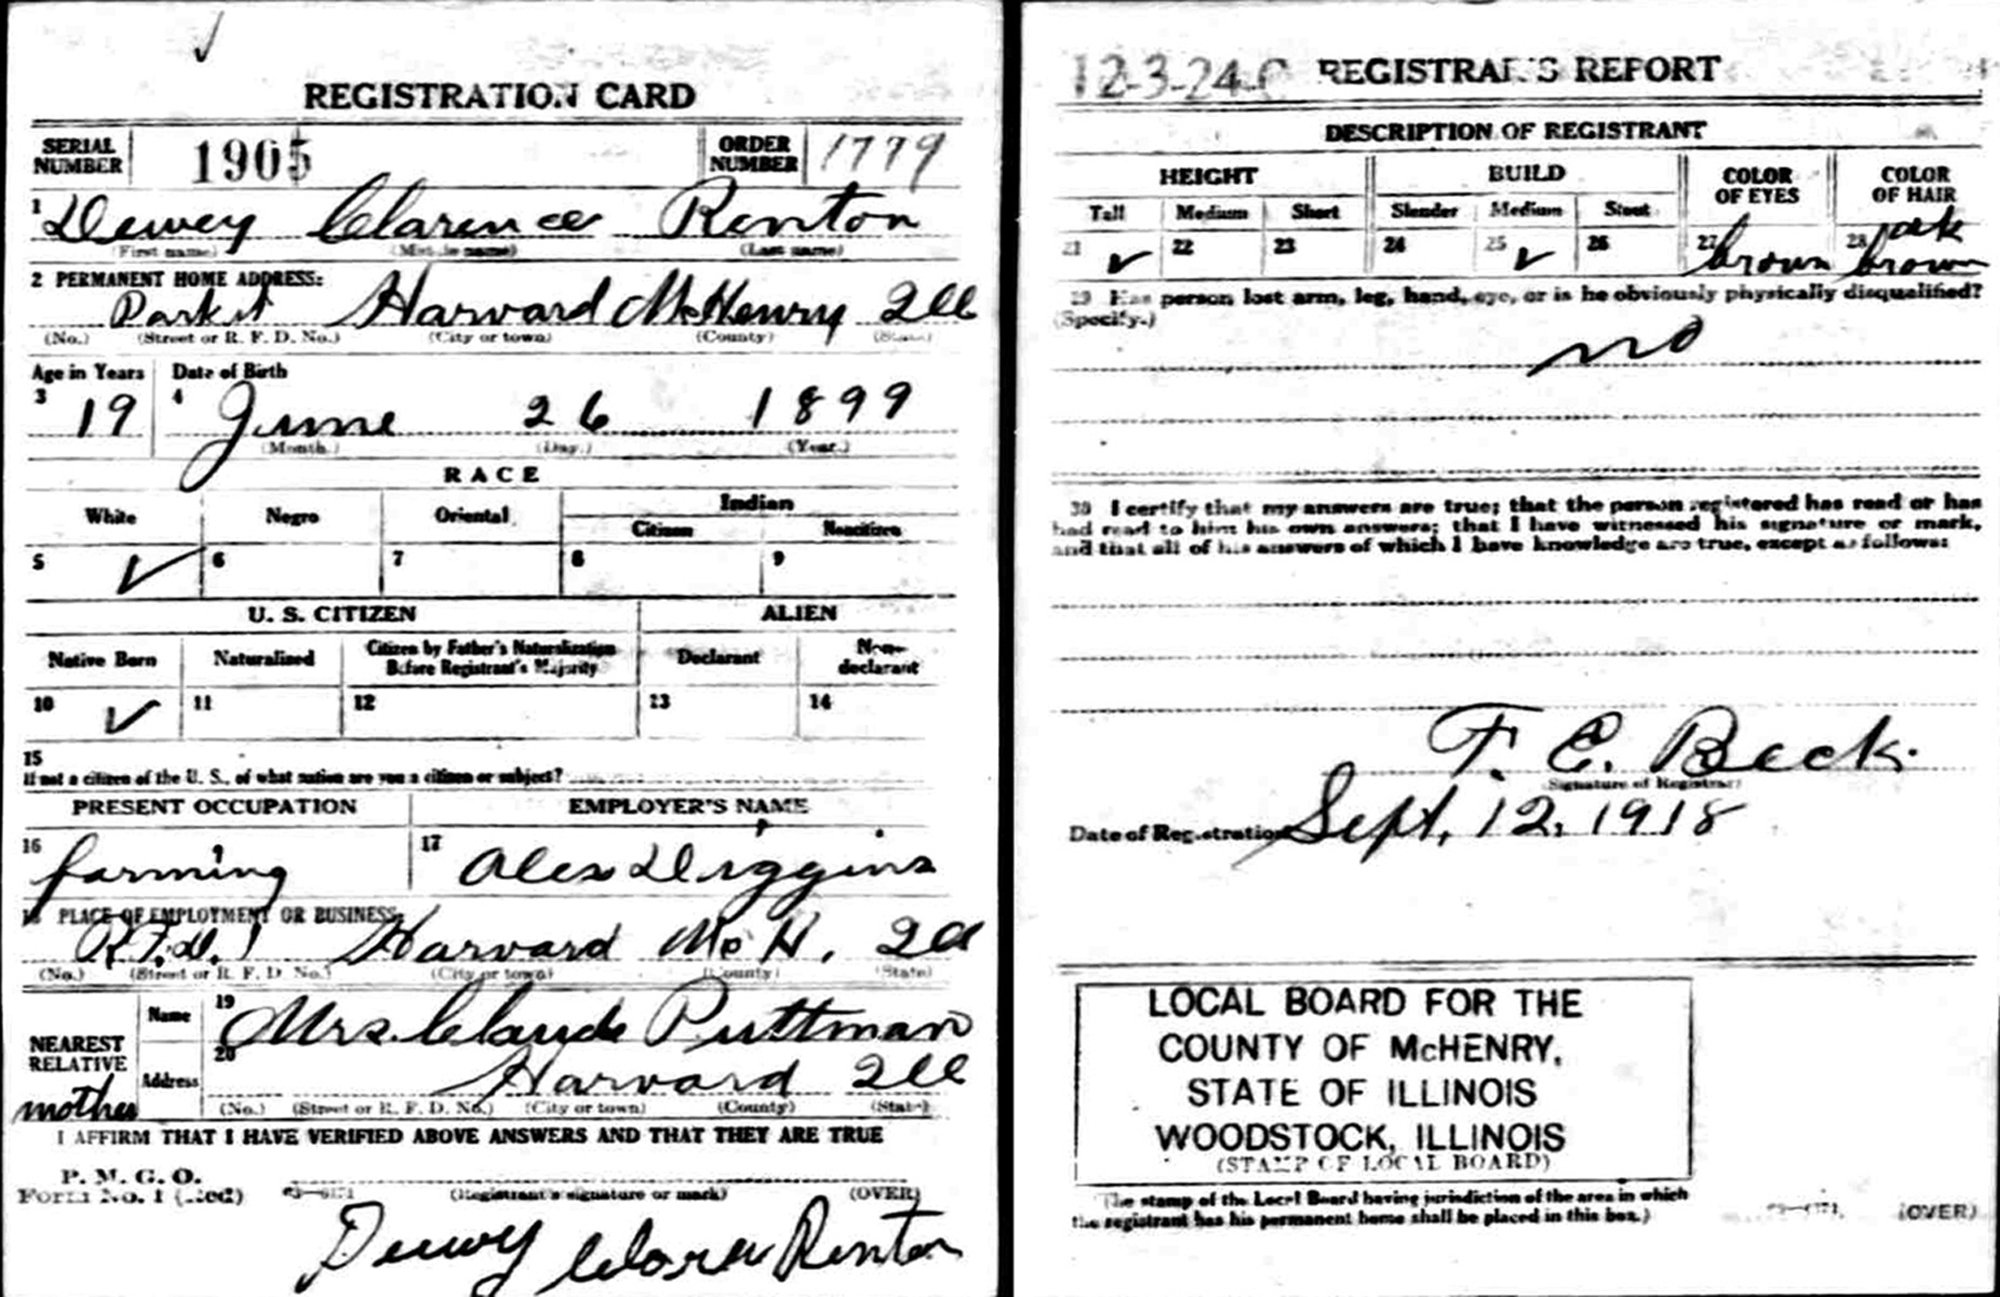 REGISTRATION CARD
SERIAL NUMBER 1905 ORDER NUMBER 1779
1 Dewey Clarence Renton
(First name) (Middle name) (Last name)
2 PERMANENT HOME ADDRESS:
Park st Harvard McHenry Ill
(No.) (Street or R. F. D. No.) (City or town) (County) (State)
Age in Years Date of Birth
3 19 4 June 26 1899
(Month.) (Day.) (Year.)
RACE
White Negro Oriental Indian
Citizen Noncitizen
5 ✓ 6 7 8 9
U. S. CITIZEN ALIEN
Native Born Naturalized Citizen by Father's Naturalization Before Registrant's Majority Declarant Non-declarant
10 ✓ 11 12 13 14
15
If not a citizen of the U. S., of what nation are you a citizen or subject?
PRESENT OCCUPATION EMPLOYER'S NAME
16 farming 17 Alex Diggins
18 PLACE OF EMPLOYMENT OR BUSINESS:
R.F.D. 1 Harvard McH. Ill
(No.) (Street or R. F. D. No.) (City or town) (County) (State)
NEAREST RELATIVE Name 19 Mrs. Claude Puttman
mother Address 20 Harvard Ill
(No.) (Street or R. F. D. No.) (City or town) (County) (State)
I AFFIRM THAT I HAVE VERIFIED ABOVE ANSWERS AND THAT THEY ARE TRUE
P. M. G. O.
Form No. 1 (Red) (Registrant's signature or mark) (OVER)
Dewey Renton
12-3-24-C REGISTRAR'S REPORT
DESCRIPTION OF REGISTRANT
HEIGHT BUILD COLOR OF EYES COLOR OF HAIR
Tall Medium Short Slender Medium Stout
21 ✓ 22 23 24 25 ✓ 26 27 brown 28 brown
29 Has person lost arm, leg, hand, eye, or is he obviously physically disqualified?
(Specify.)
no
30 I certify that my answers are true; that the person registered has read or has
had read to him his own answers; that I have witnessed his signature or mark,
and that all of his answers of which I have knowledge are true, except as follows:
F. E. Beck.
(Signature of Registrar)
Date of Registration Sept. 12, 1918
LOCAL BOARD FOR THE
COUNTY OF McHENRY,
STATE OF ILLINOIS
WOODSTOCK, ILLINOIS
(STAMP OF LOCAL BOARD)
(The stamp of the Local Board having jurisdiction of the area in which
the registrant has his permanent home shall be placed in this box.)
(OVER)